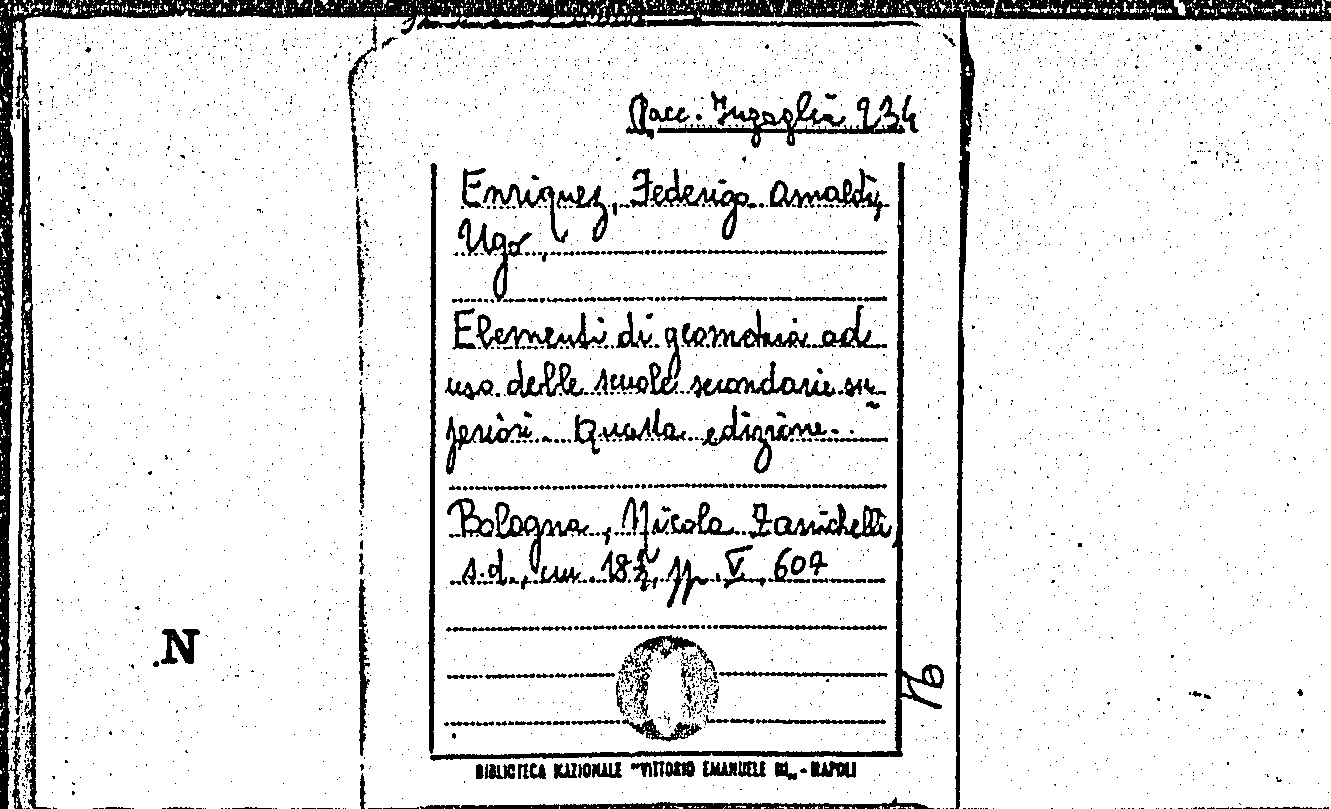 Racc. Ingaglia 234
Enriquez, Federigo Amaldi,
Ugo,
Elementi di geometria ad
uso delle scuole secondarie su-
periori. Quarta edizione..
Bologna, Nicola Zanichelli,
s.d., cm. 18½, pp. V, 607
N
BIBLIOTECA NAZIONALE "VITTORIO EMANUELE III„ - NAPOLI